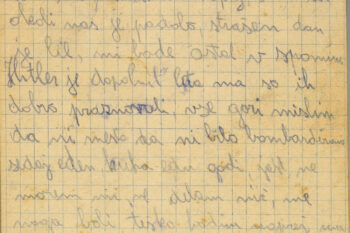 nas je padalo, strašen dan
je bil, mi bode ostal v spominu
Hitler je dopolnil leta ma so ih
dobro praznovali, vse gori mislim
da ni mesta da ni bilo bombardirano
sedaj eden kuha edn godi, jest ne
morem nič ne delam nič, me
noga boli tesko hodim naprej